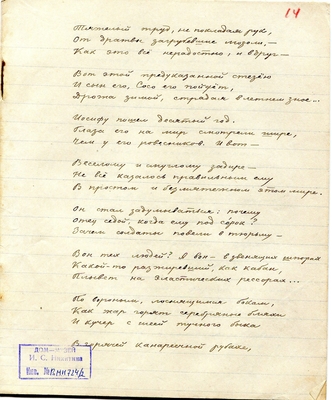 14
Тяжелый труд, не покладая рук,
От дратвы загрубевшие мозоли,—
Как это всё нерадостно, и вдруг—
Вот этой предуказанной стезёю
И сын его, Сосо его пойдёт,
Дрожа зимой, страдая в летнем зное...
Иосифу пошел десятый год.
Глаза его на мир смотрели шире,
Чем у его ровесников. И вот—
Веселому и смуглому задире—
Не всё казалось правильным ему
В простом и безмятежном этом мире.
Он стал задумываться: почему
Отец седой, когда ему под сорок?
Зачем солдаты повели в тюрьму—
Вон тех людей? А вон— в звенящих шпорах
Какой-то разжиревший, как кабан,
Плывет на эластических рессорах...
По вороным, лоснящимся бокам,
Как жар горят серебряные бляхи
И кучер с шеей тучного быка
В горячей канареечной рубахе,
ДОМ-МУЗЕЙ
И. С. Никитина
Инв. №